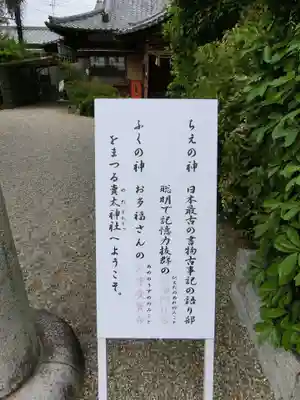 ちえの神　日本最古の書物古事記の語り部
聡明で記憶力抜群の
ふくの神　お多福さんの
をまつる賣太神社へようこそ。